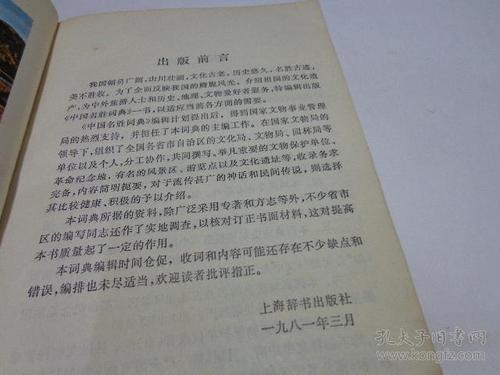 出版前言
我国幅员广阔，山川壮丽，文化古老，历史悠久，名胜古迹，
美不胜收。为了全面反映我国的旖旎风光，介绍祖国的文化遗
产，为中外旅游人士和历史、地理、文物爱好者服务，特编辑出版
《中国名胜词典》一书，以适应当前各方面的需要。
《中国名胜词典》编辑计划提出后，得到国家文物事业管理
局的热烈支持，并担任了本词典的主编工作。在国家文物局的
领导下，组织了全国各省市自治区的文化局、文物局、园林局等
单位以及个人，分工协作，共同撰写。举凡重要的文物保护单位、
革命纪念地，有名的风景区、游览点以及文化遗址等，收录务求
完备，内容简明扼要，对于流传甚广的神话和民间传说，则选择
其比较健康、积极的予以介绍。
本词典所据的资料，除广泛采用专著和方志等外，不少省市
区的编写同志还作了实地调查，以核对订正书面材料，这对提高
本书质量起了一定的作用。
本词典编辑时间仓促，收词和内容可能还存在不少缺点和
错误，编排也未尽适当，欢迎读者批评指正。
上海辞书出版社
一九八一年三月
孔夫子旧书网
www.kongfz.com